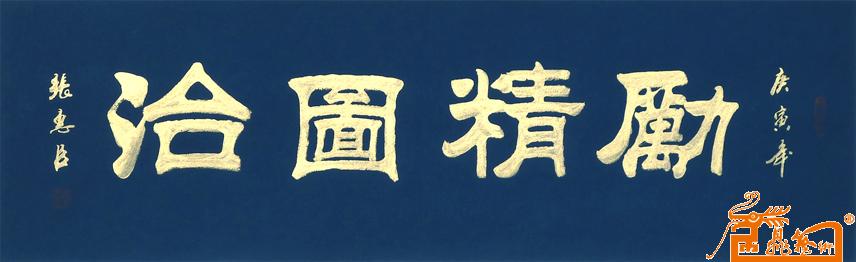 庚寅年
勵精圖治
張惠臣